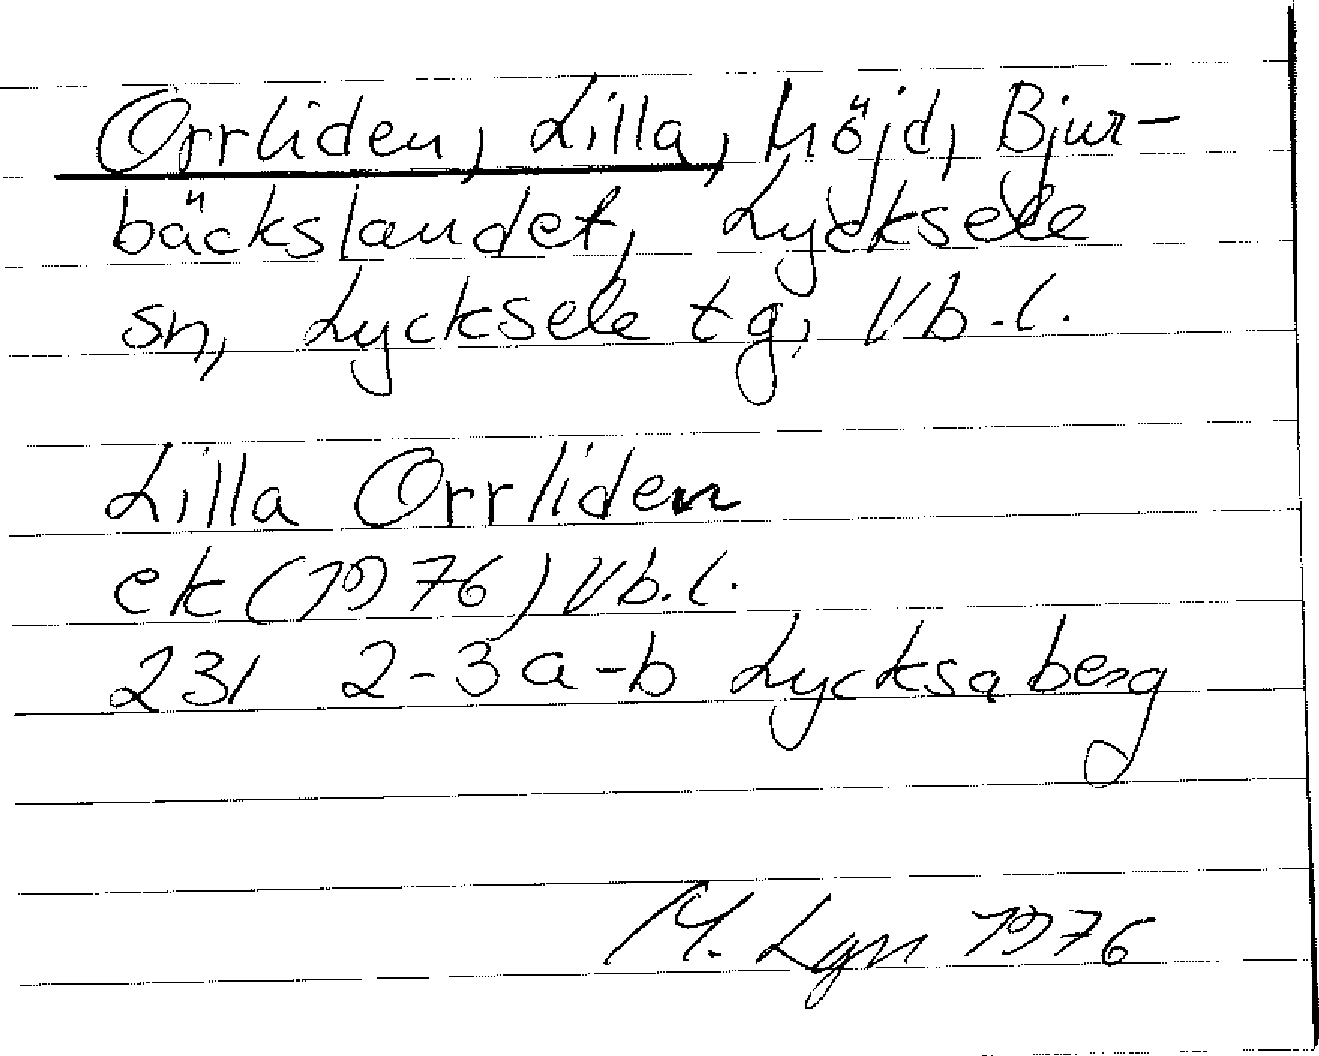 Orrliden, Lilla, höjd, Bjur-
bäckslandet, Lycksele
sn, Lycksele tg, Vb.l.
Lilla Orrliden
ek (1976) Vb.l.
231 2-3 a-b Lycksaberg
M. Lgn 1976